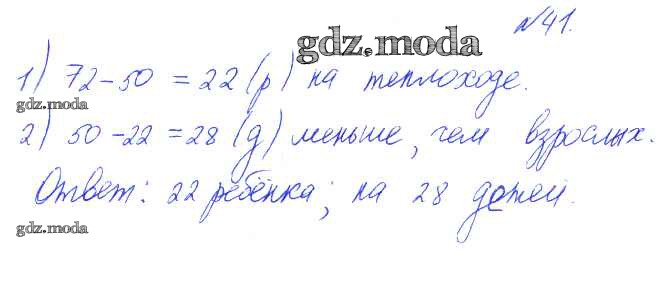 №41.
gdz.moda
1) 72-50 = 22 (р) на теплоходе.
gdz.moda
2) 50-22 = 28 (д) меньше, чем взрослых.
Ответ: 22 ребёнка; на 28 детей.
gdz.moda